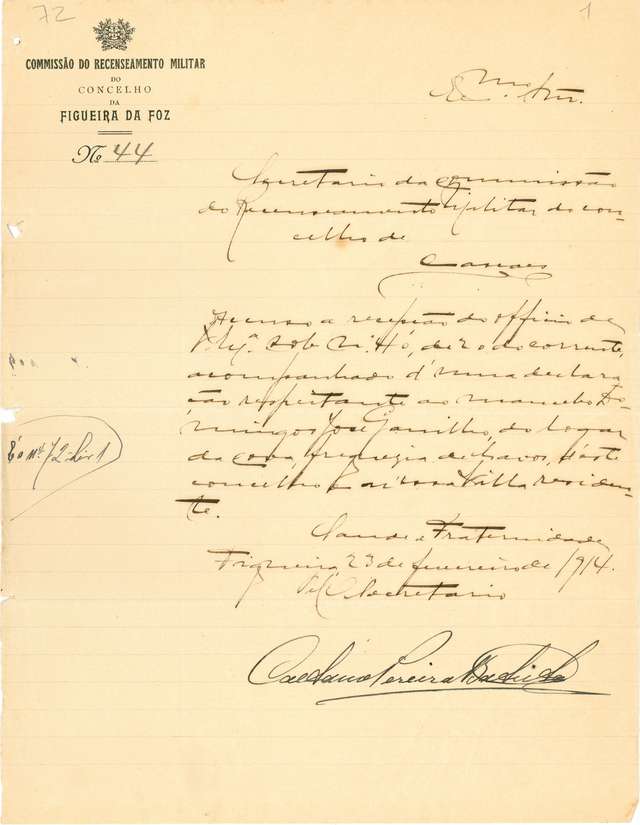 72
1
COMMISSÃO DO RECENSEAMENTO MILITAR
DO
CONCELHO
DA
FIGUEIRA DA FOZ
Nº 44
Ex.mo Snr.
Secretario da Commissão
do Recenseamento Militar do con-
celho de
Cascaes
Accuso a recepção do officio de
V. Ex.ª sob Nº 40, de 20 do corrente,
acompanhado d'uma declara-
ção respeitante ao mancebo Do-
mingos José, do logar
da Cova, freguezia de Lavos, d'este
concelho e n'essa Villa residen-
te.
É o nº 72 Liv 1
Saude e Fraternidade
Figueira 23 de fevereiro de 1914.
O Secretario
Caetano Pereira